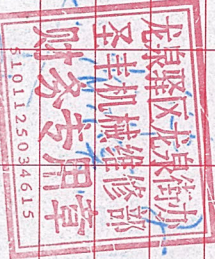 龙泉驿区龙泉街办
圣丰机械维修部
财务专用章
5101125034615